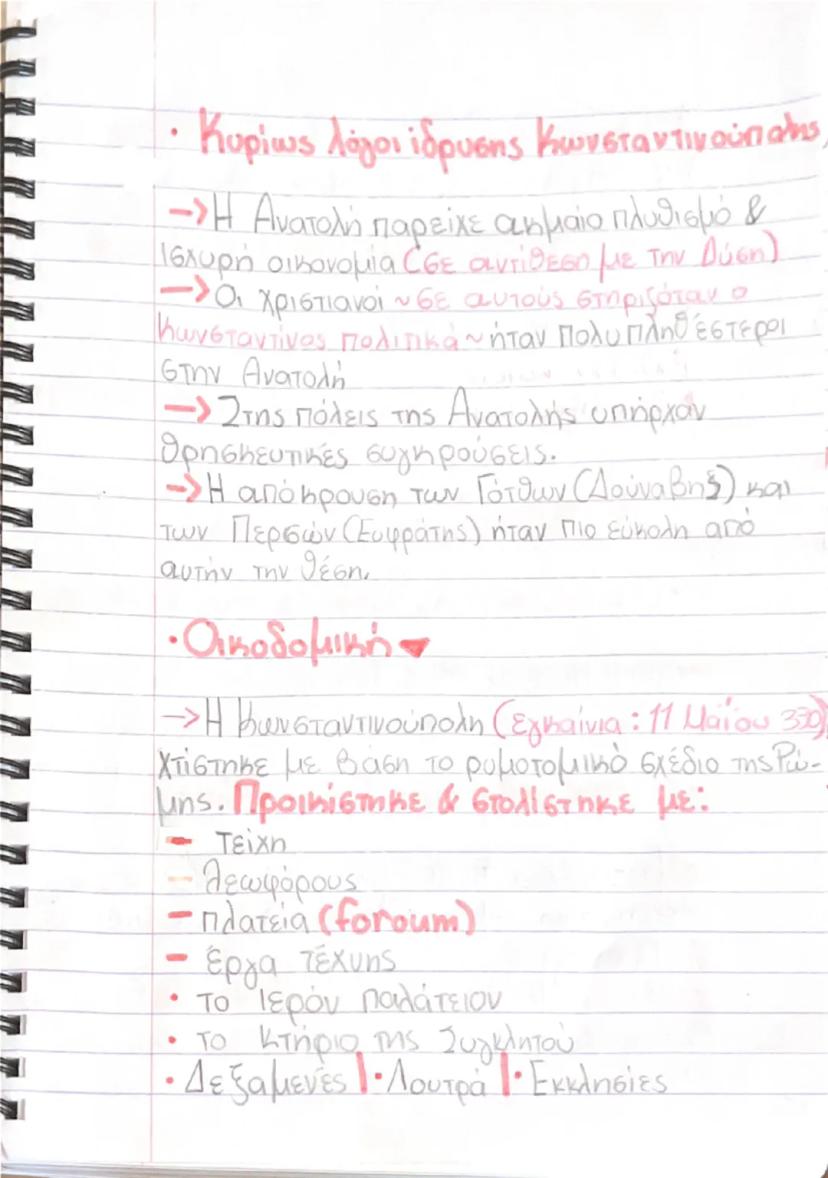 • Κυρίως λόγοι ίδρυσης Κωνσταντινούπολης
→ Η Ανατολή παρείχε ακμαίο πλυθισμό &
ισχυρή οικονομία (σε αντίθεση με την Δύση)
→ Οι χριστιανοί ~ σε αυτούς στηριζόταν ο
Κωνσταντίνος πολιτικά ~ ήταν πολυπληθέστεροι
στην Ανατολή
→ Στης πόλεις της Ανατολής υπήρχαν
θρησκευτικές συγκρούσεις.
→ Η απόκρουση των Γότθων (Δούναβης) και
των Περσών (Ευφράτης) ήταν πιο εύκολη από
αυτήν την θέση.
• Οικοδομική
→ Η Κωνσταντινούπολη (εγκαίνια : 11 Μαΐου 330)
χτίστηκε με βάση το ρυμοτομικό σχέδιο της Ρώ-
μης. Προικίστηκε & στολίστηκε με:
- τείχη
- λεωφόρους
- πλατεία (foroum)
- έργα τέχυης
• το Ιερόν παλάτειον
• το κτήριο της Συγκλητού
• Δεξαμενές | • Λουτρά | • Εκκλησίες